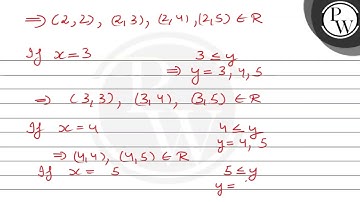 ⇒ (2,2), (2,3), (2,4), (2,5) ∈ R
If x = 3 3 ≤ y
⇒ y = 3, 4, 5
⇒ (3,3), (3,4), (3,5) ∈ R
If x = 4 4 ≤ y
y = 4, 5
⇒ (4,4), (4,5) ∈ R
If x = 5 5 ≤ y
y =